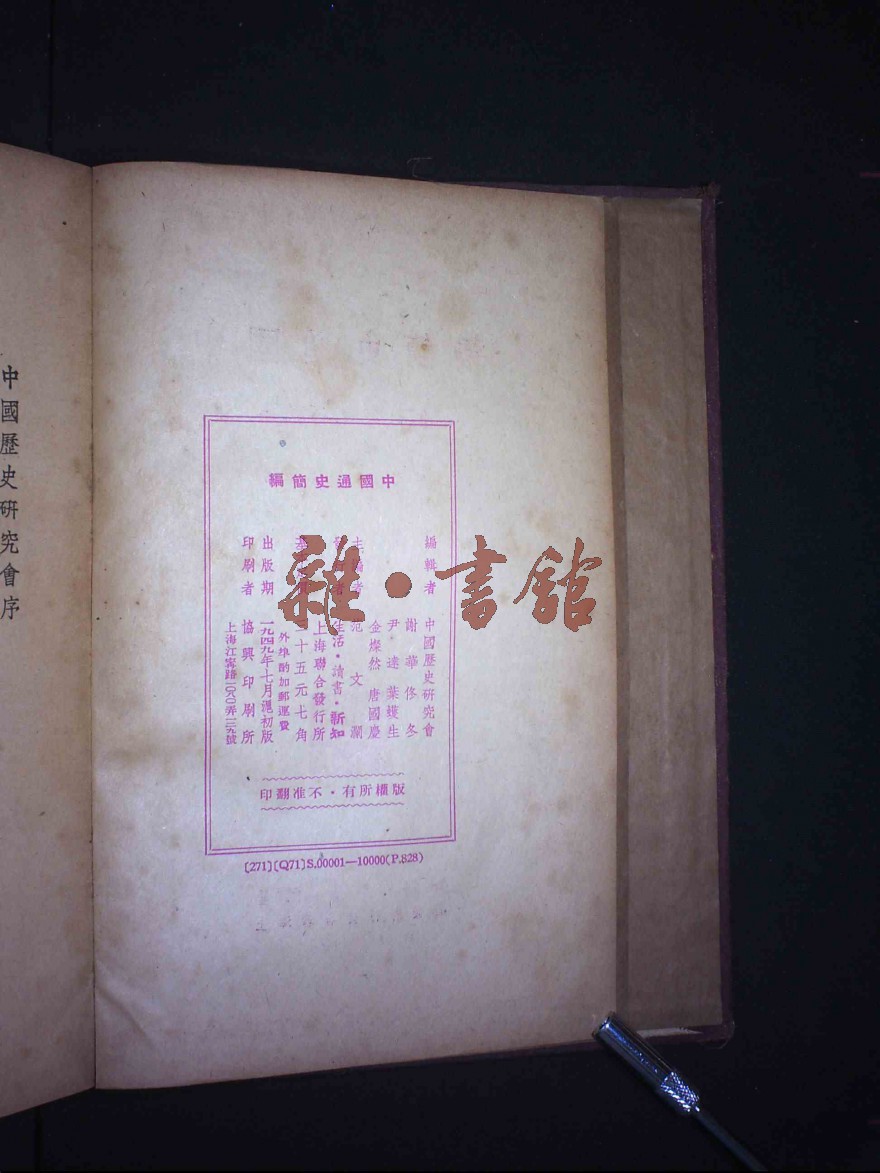 中國通史簡編
編輯者 中國歷史研究會
謝華 佟冬
尹達 葉蠖生
金燦然 唐國慶
主編者 范文瀾
生活・讀書・新知
上海聯合發行所
十五元七角
外埠酌加郵運費
出版期 一九四九年七月滬初版
印刷者 協興印刷所
上海江寧路
版權所有・不准翻印
[271](Q71)S.00001—10000(P.828)
中國歷史研究會序
雜・書館